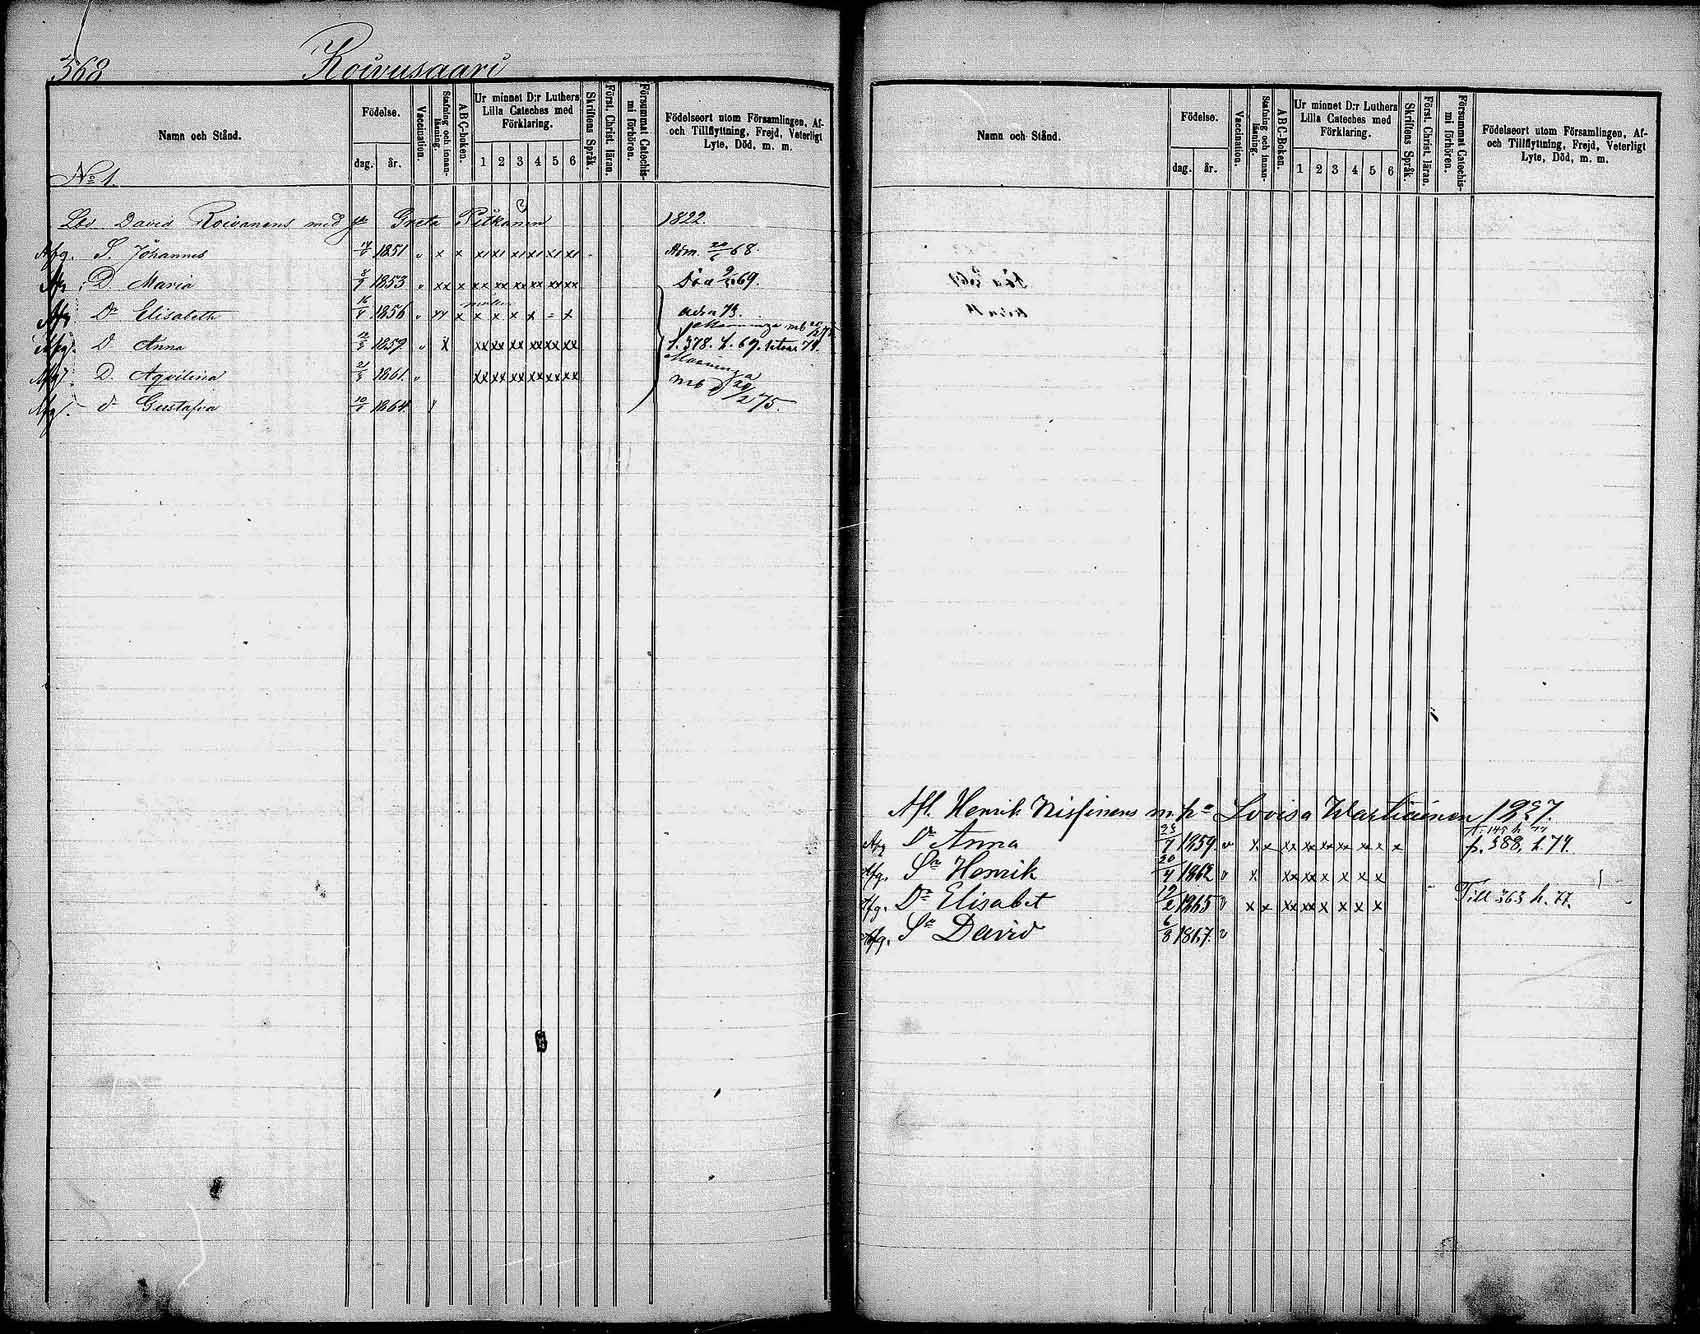 568 Koivusaari
Namn och Stånd.
Födelse.
dag.
år.
Vaccination.
Stafning och innan-läsning.
ABC-boken.
Ur minnet D:r Luthers
Lilla Cateches med
Förklaring.
1 2 3 4 5 6
Skriftens Språk.
Först. Christ. läran.
Försummat Catechis-
mi förhören.
Födelseort utom Församlingen, Af-
och Tillflyttning, Frejd, Veterligt
Lyte, Död, m. m.
No 1.
David Roivanens med Greta Pitkänen 1822.
Afg. S. Johannes 1851 x x xx xx xx xx xx xx Adm. 68.
D. Maria 1853 xx x xx xx xx xx xx xx Död 69.
Dr Elisabeth 16 1856 xx x x x x x = x adm 73.
D Anna 12 1859 x xx xx xx xx xx xx f. 378. h. 69.
D. Aqvilina 21 1861 xx xx xx xx xx xx Maaninga
d Gustafva 10 1864 mb 75.
Namn och Stånd.
Födelse.
dag.
år.
Vaccination.
Stafning och innan-läsning.
ABC-Boken.
Ur minnet D:r Luthers
Lilla Cateches med
Förklaring.
1 2 3 4 5 6
Skriftens Språk.
Först. Christ. läran.
Försummat Catechis-
mi förhören.
Födelseort utom Församlingen, Af-
och Tillflyttning, Frejd, Veterligt
Lyte, Död, m. m.
Afl. Henrik Nissinens Lovisa
Afg Dr Anna 1859 x x xx xx xx x x x p. 388. h. 74.
Afg. Sn Henrik 20/4 1862 x xx xx x x x x
Afg. Dr Elisabet 19/2 1865 x x xx xx x x x x Till 363 h. 77.
Afg. Sn David 6/8 1867.